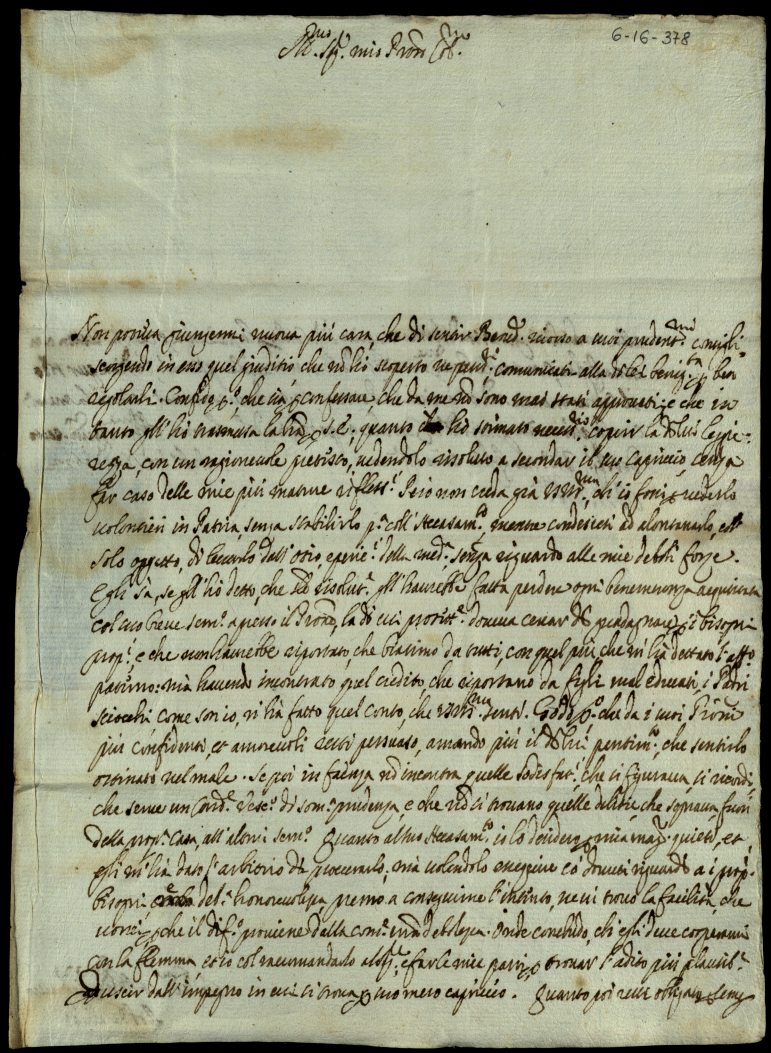 6-16-378
Ill.mo Sig.r mio Pron Col.mo
Non poteva giungermi nuova più cara, che di sentir Bened.o ricorso a suoi prudent.mi consigli
scorgendo in esso quel giuditio che nō hò scoperto ne comunicati alla di lei benig.tà p ben
regolarli. Confido p.ò, che sia p confessare, che da me nō sono mai stati approvati, e che in
tanto gl'hò trasmessa la p S.E., quanto hò stimato necess.rio coprir la di lui leggie=
rezza, con un ragionevole pretesto, vedendolo risoluto a secondar il suo capriccio, senza
far caso delle mie più mature rifless.i. Però non creda già VS Ill.ma, ch'io fossi p vederlo
volontieri in Patria, senza stabilirlo p.a coll'Accasam.to, mentre condescesi ad alontanarlo, coll
solo oggetto, di levarlo dall'otio, e della med.a, senza riguardo alle mie deboli forze.
Egli sà, se gl'hò detto, che tal risolut.e gl'havrebbe fatta perdere ogni benemerenza acquistata
col suo breve serv.o apresso il Prone, la di cui protett.e doveva cercar di guadagnare p i bisogni
prop.i, e che non havrebbe riportato, che biasimo da tutti, con quel più, che m'hà dettato l'aff.o
paterno: mà havendo incontrato quel credito, che riportano da figli mal educati, i Padri
sciocchi, come son io, n'hà fatto quel conto, che VS Ill.ma sente. Godo p.ò che da i suoi Proni
più confidenti, et amorevoli resti persuaso, amando più il di lui pentim.to, che sentirlo
ostinato nel male. Se poi in Faenza nō incontra quelle sodisfat.i che si figurava, si ricordi,
che serve un Card.e Vesc.o di som.a prudenza, e che nō si trovano quelle delitie, che sognava fuori
della prop.a casa, all'altrui serv.o. Quanto al suo Accasam.to io lo desidero p mia mag.r quiete, et
egli m'hà dato l'arbitrio di procurarlo, mà volendolo eseguire cō dovuti riguardi a i prop.i
bisogni, del.a honorevolezza premo a conseguirne l'intento, ne vi trovo la facilità, che
vorrei, p che il dif.o proviene dalla com.e debolezza. Onde concludo, ch'egli deve cooperarvi
con la flemma, et io col racomandarlo al Sig.re, e far le mie parti p trovar l'adito più plausib.e
d'uscir dall'impegno in cui si trova p suo mero capriccio. Quanto poi resti obligato